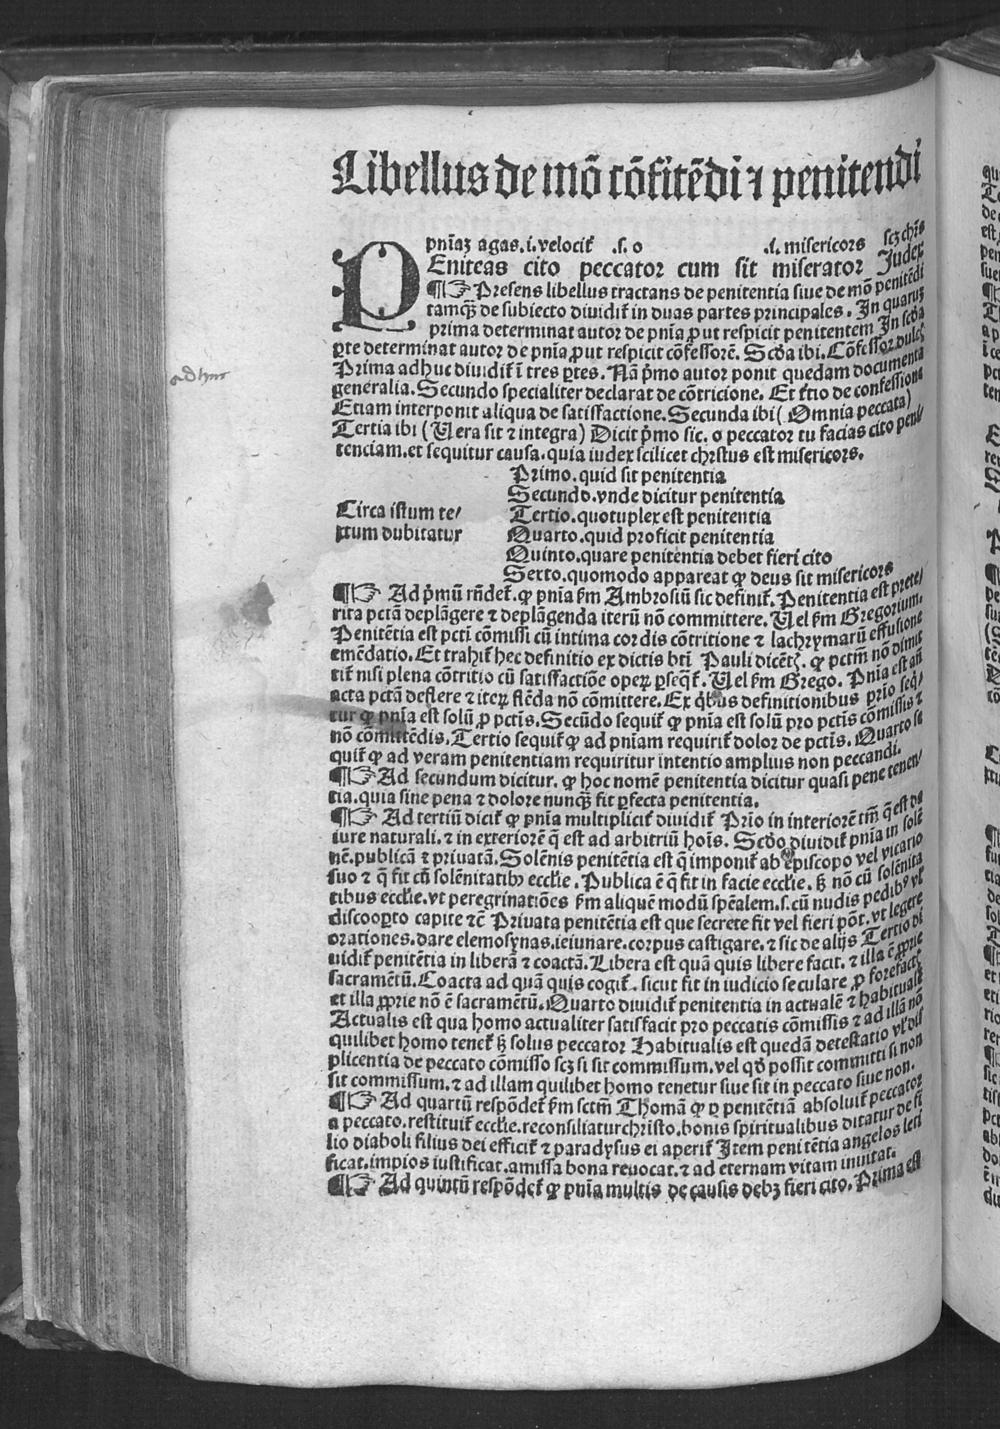 Libellus de mō cōfitēdi ⁊ penitendi
pn̄iaꝫ agas .i. velocit̛ .s. o .i. misericors scꝫ chr̄s
PEniteas cito peccator cum sit miserator Judex
¶☞ Presens libellus tractans de penitentia siue de mō penitēdi
tamqꝫ̄ de subiecto diuidit̛ in duas partes principales. In quaruꝫ
prima determinat autor de pn̄ia ꝓut respicit penitentem In scd̄a
ꝑte determinat autor de pn̄ia ꝓut respicit cōfessorē. Scd̄a ibi. Cōfessor dulcꝭ
Prima adhuc diuidit̛ ī tres ꝑtes. Nā p̄mo autor ponit quedam documenta
generalia. Secundo specialiter declarat de cōtricione. Et t̛tio de confessione
Etiam interponit aliqua de satisfactione. Secunda ibi (Omnia peccata)
Tertia ibi (Uera sit ⁊ integra) Dicit p̄mo sic. o peccator tu facias cito peni/
tenciam. et sequitur causa. quia iudex scilicet chrstus est misericors.
Primo. quid sit penitentia
Secundo. vnde dicitur penitentia
Circa istum te/ Tertio. quotuplex est penitentia
xtum dubitatur Quarto. quid proficit penitentia
Quinto. quare penitentia debet fieri cito
Sexto. quomodo appareat ꝙ deus sit misericors
¶☞ Ad p̄mū rn̄det̛. ꝙ pn̄ia ẜm Ambrosiū sic definit̛. Penitentia est prete/
rita pctā deplāgere ⁊ deplāgenda iterū nō committere. Uel ẜm Gregorium.
Penitētia est pcti cōmissi cū intima cordis cōtritione ⁊ lachrymarū effusione
emēdatio. Et trahit̛ hec definitio ex dictis bti Pauli dicētꝭ. ꝙ pctm̄ nō dimit
tit̛ nisi plena cōtritio cū satisfactiōe operꝫ ꝑseqt̛. Uel ẜm Grego. Pn̄ia est an̄
acta pctā deflere ⁊ iteꝝ flēda nō cōmittere. Ex q̇bus definitionibus p̄rio seq̇/
tur ꝙ pn̄ia est solū ꝓ pctis. Secūdo sequit̛ ꝙ pn̄ia est solū pro pctis cōmissis ⁊
nō cōmittēdis. Tertio sequit̛ ꝙ ad pn̄iam requirit̛ dolor de pctis. Quarto se
quit̛ ꝙ ad veram penitentiam requiritur intentio amplius non peccandi.
¶☞ Ad secundum dicitur. ꝙ hoc nomē penitentia dicitur quasi pene tenen/
tia. quia sine pena ⁊ dolore nunqꝫ̄ fit ꝑfecta penitentia.
¶☞ Ad tertiū dicit̛ ꝙ pn̄ia multiplicit̛ diuidit̛ Pr̄io in interiorē tm̄ q̄ est de
iure naturali. ⁊ in exteriorē q̄ est ad arbitriū hoīs. Scd̄o diuidit̛ pn̄ia in solē
nē. publicā ⁊ priuatā. Solēnis penitētia est q̄ imponit̛ ab episcopo vel vicario
suo ⁊ q̄ fit cū solēnitatibꝰ eccl̄ie. Publica ē q̄ fit in facie eccl̄ie. ꝫ nō cū solēnita
tibus eccl̄ie. vt peregrinatiōes ẜm aliquē modū sp̄ealem .s. cū nudis pedibꝰ vl̛
discooꝑto capite ⁊c̄ Priuata penitētia est que secrete fit vel fieri pōt. vt legere
orationes. dare elemosynas. ieiunare. corpus castigare. ⁊ sic de alijs Tertio di
uidit̛ penitētia in liberā ⁊ coactā. Libera est quā quis libere facit. ⁊ illa ē ꝓprie
sacramētū. Coacta ad quā quis cogit̛. sicut fit in iudicio seculare ꝓ forefactꝭ
et illa ꝓprie nō ē sacramētū. Quarto diuidit̛ penitentia in actualē ⁊ habitualē
Actualis est qua homo actualiter satisfacit pro peccatis cōmissis ⁊ ad illā nō
quilibet homo tenet̛ ꝫ solus peccator Habitualis est quedā detestatio vl̛ dis
plicentia de peccato cōmisso scꝫ si sit commissum. vel qd̄ possit committi si non
sit commissum. ⁊ ad illam quilibet homo tenetur siue sit in peccato siue non.
¶☞ Ad quartū respōdet̛ ẜm sctm̄ Thomā ꝙ ꝑ penitētiā absoluit̛ peccator
a peccato. restituit̛ eccl̄ie. reconsiliatur christo. bonis spiritualibus ditatur de fi
lio diaboli filius dei efficit̛ ⁊ paradysus ei aperit̛ Item penitētia angelos leti
ficat. impios iustificat. amissa bona reuocat. ⁊ ad eternam vitam inuitat.
¶☞ Ad quintū respōdet̛ ꝙ pn̄ia multis de causis debꝫ fieri cito. Prima est